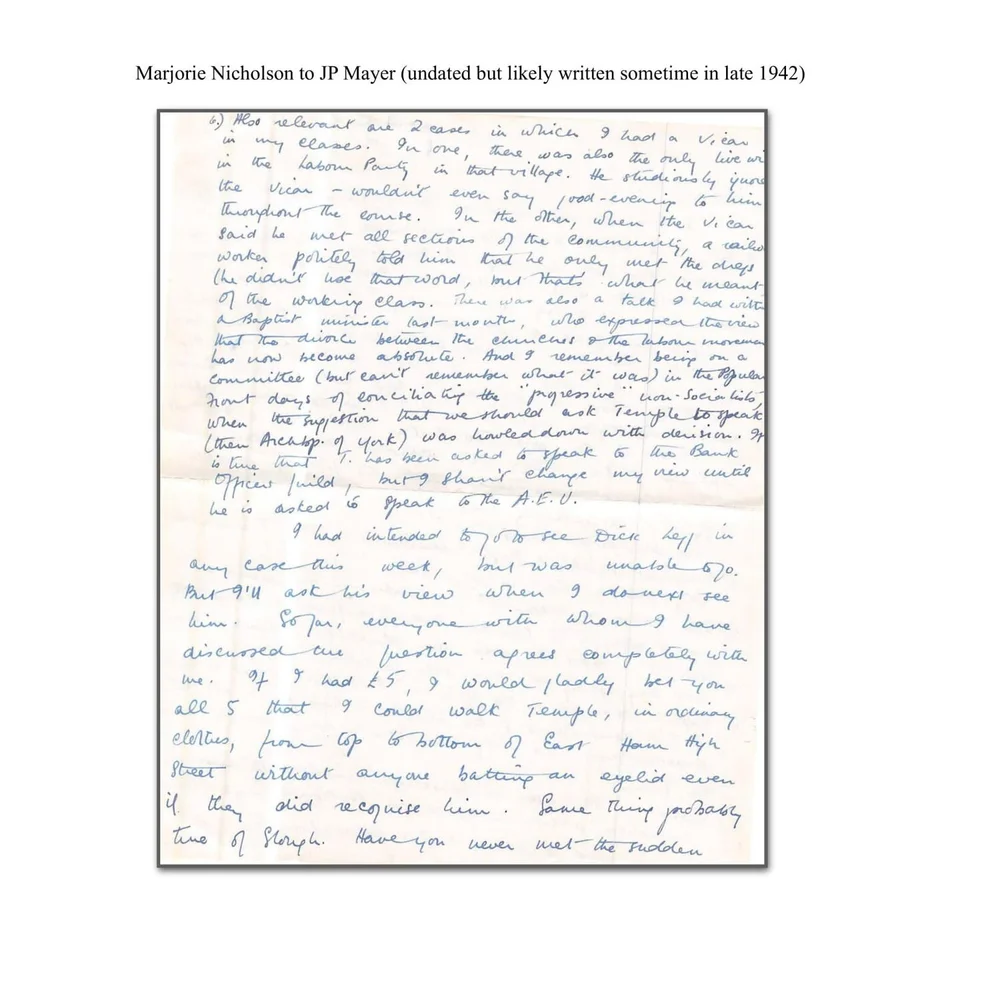 Marjorie Nicholson to JP Mayer (undated but likely written sometime in late 1942)
6.) Also relevant are 2 cases in which I had a Vicar
in my classes. In one, there was also the only live wi
in the Labour Party in that village. He studiously ignore
the Vicar – wouldn't even say good-evening to him
throughout the course. In the other, when the Vicar
said he met all sections of the community, a railw
worker politely told him that he only met the dregs
(he didn't use that word, but that's what he meant
of the working class. There was also a talk I had with
a Baptist minister last month, who expressed the view
that the divorce between the churches & the labour movemen
has now become absolute. And I remember being on a
committee (but can't remember what it was) in the Popular
Front days of conciliating the "progressive" non-Socialists,
when the suggestion that we should ask Temple to speak
(then Archbp. of York) was howled down with derision. It
is true that T. has been asked to speak to the Bank
Officers Guild, but I shan't change my view until
he is asked to speak to the A.E.U.
I had intended to go to see Dick in
any case this week, but was unable to go.
But I'll ask his view when I do next see
him. So far, everyone with whom I have
discussed the question agrees completely with
me. If I had £5, I would gladly bet you
all 5 that I could walk Temple, in ordinary
clothes, from top to bottom of East Ham High
Street without anyone batting an eyelid even
if they did recognise him. Same thing probably
true of Slough. Have you never met the sudden